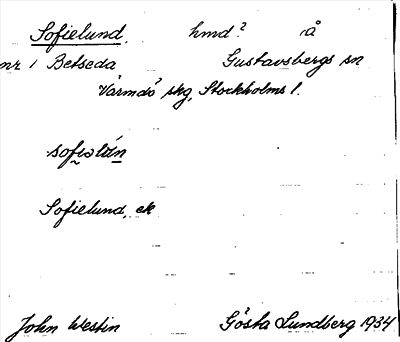 Sofielund. hmd? å
nr 1 Betseda Gustavsbergs sn
Värmdö skg, Stockholms l.
Sofielund, ek
John Westin Gösta Lundberg 1934